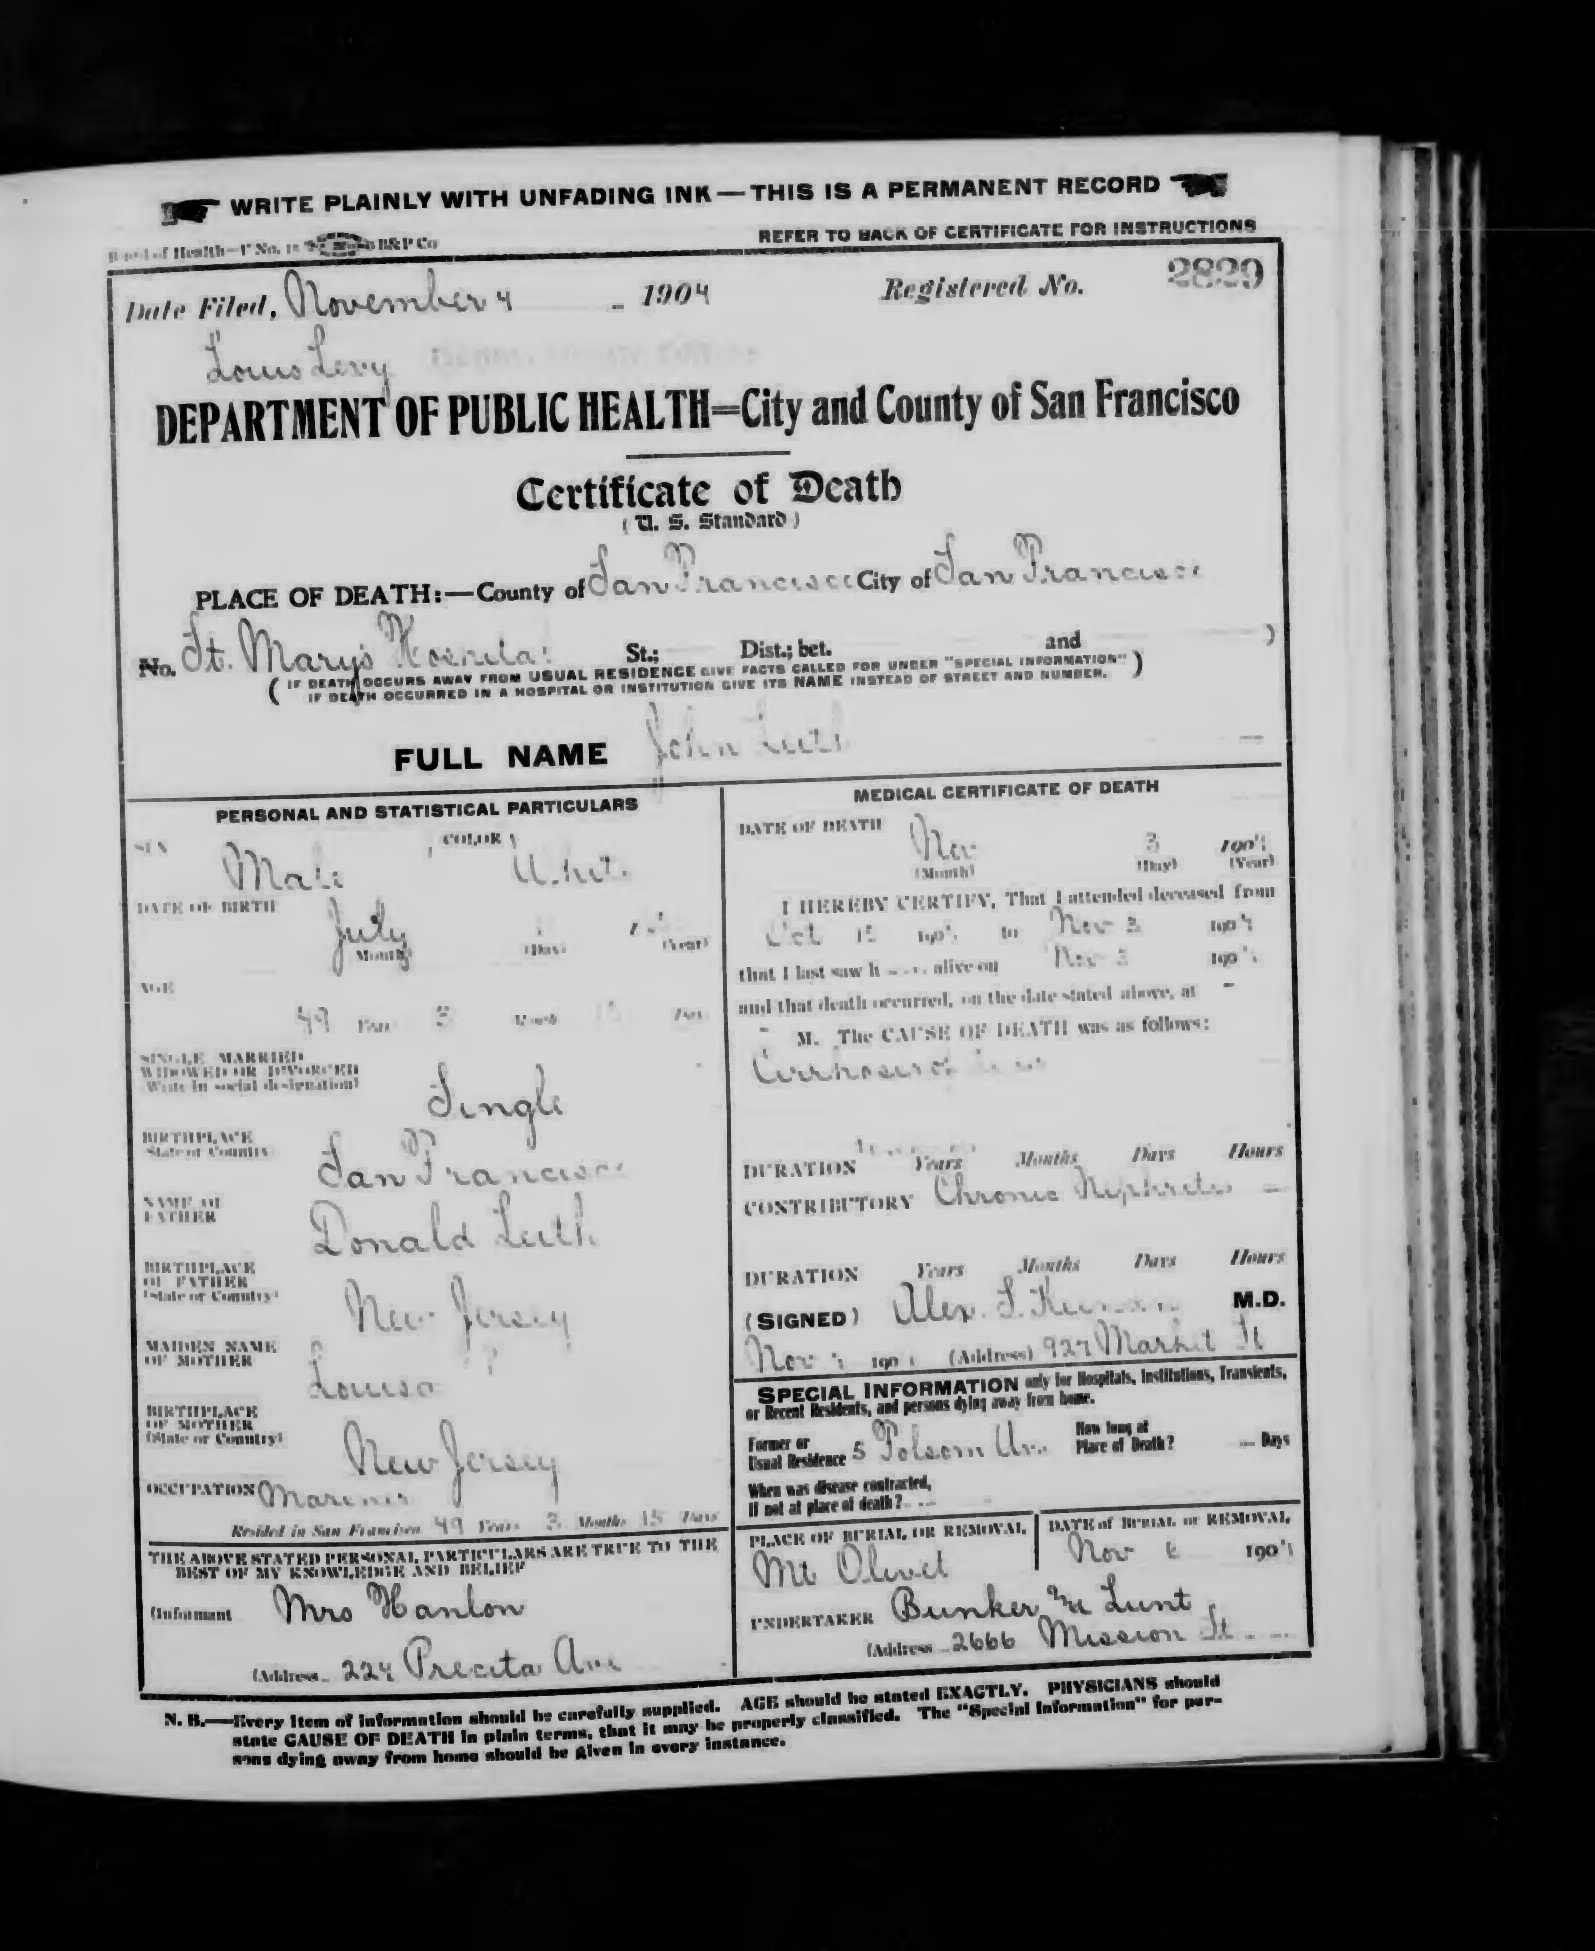 WRITE PLAINLY WITH UNFADING INK — THIS IS A PERMANENT RECORD
Board of Health—F No. 15 B&P Co
REFER TO BACK OF CERTIFICATE FOR INSTRUCTIONS
Date Filed, November 4 1904 Registered No. 2829
Louis Levy
DEPARTMENT OF PUBLIC HEALTH=City and County of San Francisco
Certificate of Death
(U. S. Standard)
PLACE OF DEATH:—County of San Francisco City of San Francisco
No. St. Mary's Hospital St.; Dist.; bet. and )
( IF DEATH OCCURS AWAY FROM USUAL RESIDENCE GIVE FACTS CALLED FOR UNDER "SPECIAL INFORMATION" )
IF DEATH OCCURRED IN A HOSPITAL OR INSTITUTION GIVE ITS NAME INSTEAD OF STREET AND NUMBER.
FULL NAME John Luth
PERSONAL AND STATISTICAL PARTICULARS
SEX Male COLOR White
DATE OF BIRTH July
(Month) (Day) (Year)
AGE
49 Years 3 Months 15 Days
SINGLE MARRIED
WIDOWED OR DIVORCED
(Write in social designation)
Single
BIRTHPLACE
(State or Country)
San Francisco
NAME OF
FATHER
Donald Luth
BIRTHPLACE
OF FATHER
(State or Country)
New Jersey
MAIDEN NAME
OF MOTHER
Louisa ?
BIRTHPLACE
OF MOTHER
(State or Country)
New Jersey
OCCUPATION Mariner
Resided in San Francisco 49 Years 3 Months 15 Days
THE ABOVE STATED PERSONAL PARTICULARS ARE TRUE TO THE
BEST OF MY KNOWLEDGE AND BELIEF
(Informant Mrs Hanlon
(Address 224 Precita Ave
MEDICAL CERTIFICATE OF DEATH
DATE OF DEATH Nov 3 1904
(Month) (Day) (Year)
I HEREBY CERTIFY, That I attended deceased from
Oct 15 1904 to Nov 3 1904
that I last saw h alive on Nov 3 1904
and that death occurred, on the date stated above, at -
- M. The CAUSE OF DEATH was as follows:
Cirrhosis of
DURATION Years Months Days Hours
CONTRIBUTORY Chronic Nephritis
DURATION Years Months Days Hours
(SIGNED) Alex. S. Keenan M.D.
Nov 1904 (Address) 927 Market St
SPECIAL INFORMATION only for Hospitals, Institutions, Transients,
or Recent Residents, and persons dying away from home.
Former or
Usual Residence 5 Folsom Ave
How long at
Place of Death? Days
When was disease contracted,
If not at place of death?
PLACE OF BURIAL OR REMOVAL
Mt Olivet
DATE of BURIAL or REMOVAL
Nov 6 1904
UNDERTAKER Bunker & Lunt
(Address 2666 Mission St
N. B.—Every item of information should be carefully supplied. AGE should be stated EXACTLY. PHYSICIANS should
state CAUSE OF DEATH in plain terms, that it may be properly classified. The "Special Information" for per-
sons dying away from home should be given in every instance.